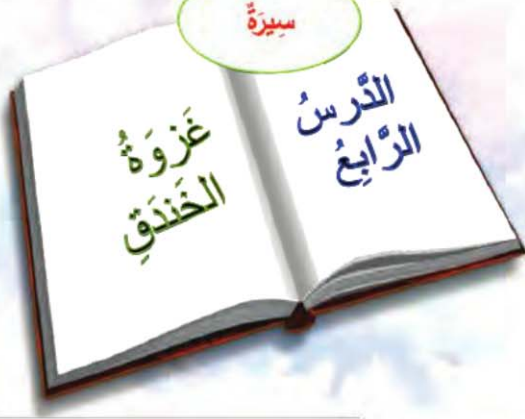 سِيرَةٌ
الدَّرسُ
الرَّابِعُ
غَزوَةُ
الخَندَقِ